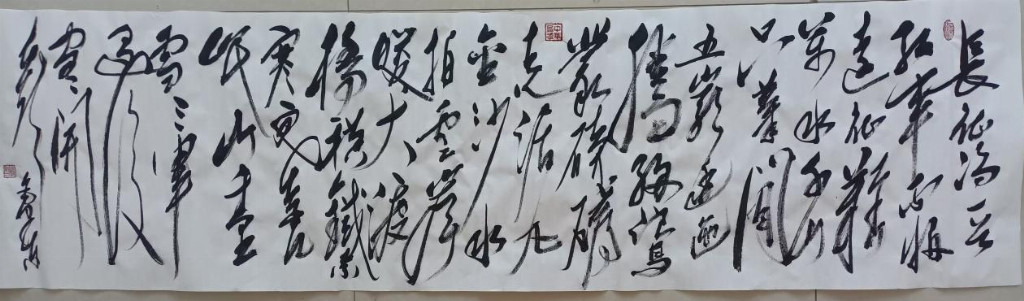 長征詩一首
红軍不怕
遠征難
萬水千山
只等閑
五嶺逶迤
騰細浪烏
蒙磅礴
走泥丸
金沙水
拍雲崖
暖大渡
橋横鐵索
寒更喜
岷山千里
雪三軍
過後
盡開
顏